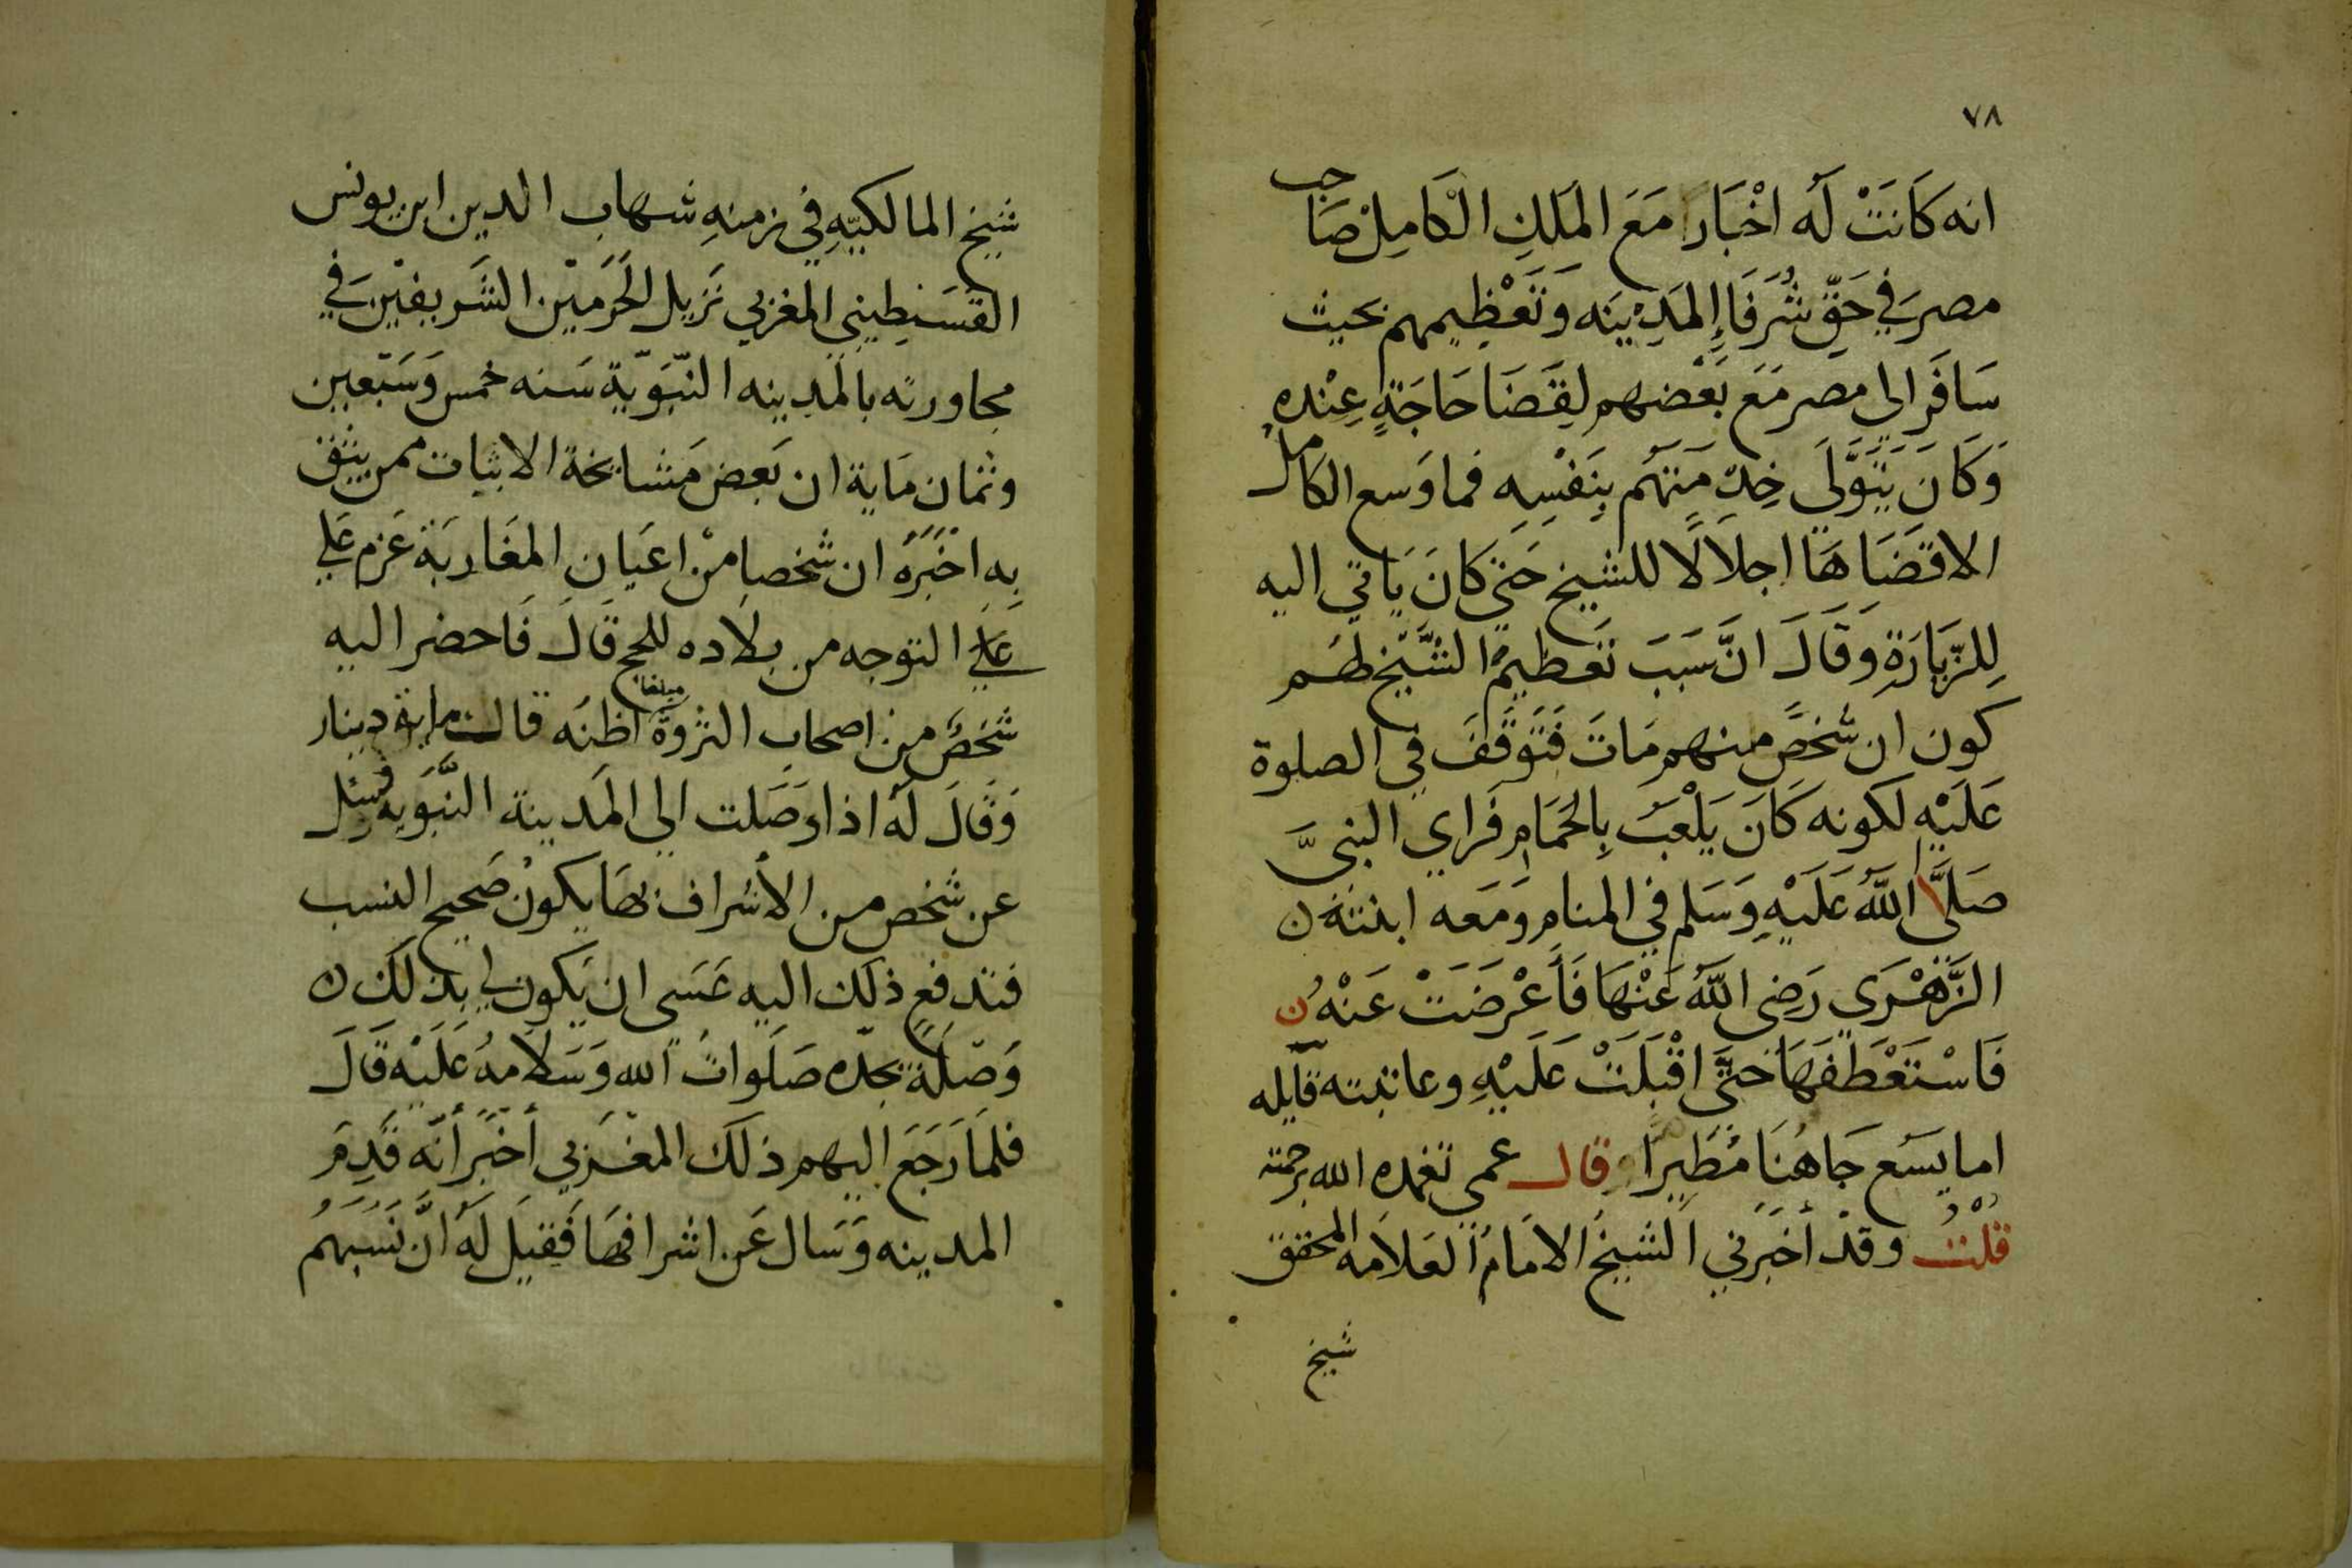 ٧٨
انه كَانَتْ لَه اخْبَار مَعَ المَلكِ الْكَامِلْ صَاحب
مصرَ في حَقِّ شُرَفَاءِ المَدِيْنَه وَتَعْظِيمِهم بحيث
سَافَر الى مصر مَعَ بَعْضهم لِقَضَا حَاجَةٍ عِنْده
وَكَانَ يَتَوَلَّى خِدْمَتَهُم بِنَفْسِه فما وَسع الكامل
الا قَضَاهَا اجلاَلًا للشيخ حَتى كَانَ يَاتي اليه
لِلزِّيَارَةِ وَقَالَ انَّ سَبَبَ تَعظيمِ الشَّيْخ لهُم
كون ان شَخصً منهم مَاتَ فَتَوَقَفَ في الصلوة
عَلَيْهِ لكونه كَانَ يَلْعَبُ بِالحَمَامِ فَراي النبيَّ
صَلَّى اللَّه عَلَيْهِ وَسَلم في المنام وَمَعَه ابنته ن
الزَّهْرَى رَضِى اللَّهُ عَنْهَا فَأَعْرَضَتْ عَنْهُ ن
فَاسْتَعْطَفَهَا حَتَّى اقْبَلَتْ عَلَيْهِ وعاتبته قايله
اما يسَع جَاهُنَا مُطَيرًا وقال عمى تغمده الله برحمته
قلْتُ وقدْ أخبَرني الشيخُ الامَامُ العَلاَمه المحقق
شيخ
شيخ المالكيّهِ في زمنهِ شهاب الدين ابن يونس
القسَنطِيني المغزبي نَزِيل الحَرَمَيْن الشَريفيْن في
مجاورته بالمَدِينه النّبَوِيّة سَنه خمس وَسَبْعين
وثمان مَاية ان بَعض مَشايخة الاثبات ممن يثق
به اخْبَرَهُ ان شخصا منْ اعيَانِ المغَاربَة عَزم عَلي
عَلَي التوجه من بلاَده للحج قَالَ فَاحضر اليه
شخصٌ من اصحاب الثروة مبلغا اظنُه قال ماية دينار
وَقَالَ لَهُ اذا وَصَلت الى المَدينة النَّبَويه فسئل
عن شخص من الأشراف بهَا يكونُ صَحيح النسب
فتدفع ذلك اليه عَسَى ان يَكون لى بذلك ن
وَصْلَة بجدّه صَلَواتُ الله وَسَلاَمهُ عَلَيْه قَالَ
فلمَا رَجَعَ اليهم ذلكَ المغزبي أخبَر أنّه قَدِمَ
المدينه وَسَال عَن اشرافهَا فَقِيلَ لَهُ انَّ نَسَبهُم